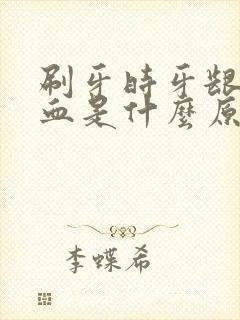 刷牙时牙龈
血是什麼原
李蝶希